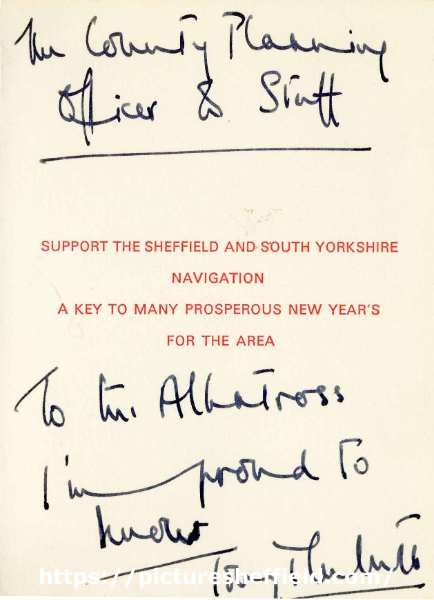 The County Planning
Officer & Staff
SUPPORT THE SHEFFIELD AND SOUTH YORKSHIRE
NAVIGATION
A KEY TO MANY PROSPEROUS NEW YEAR'S
FOR THE AREA
To the Albatross
I'm proud to
know
https://picturesheffield.com/